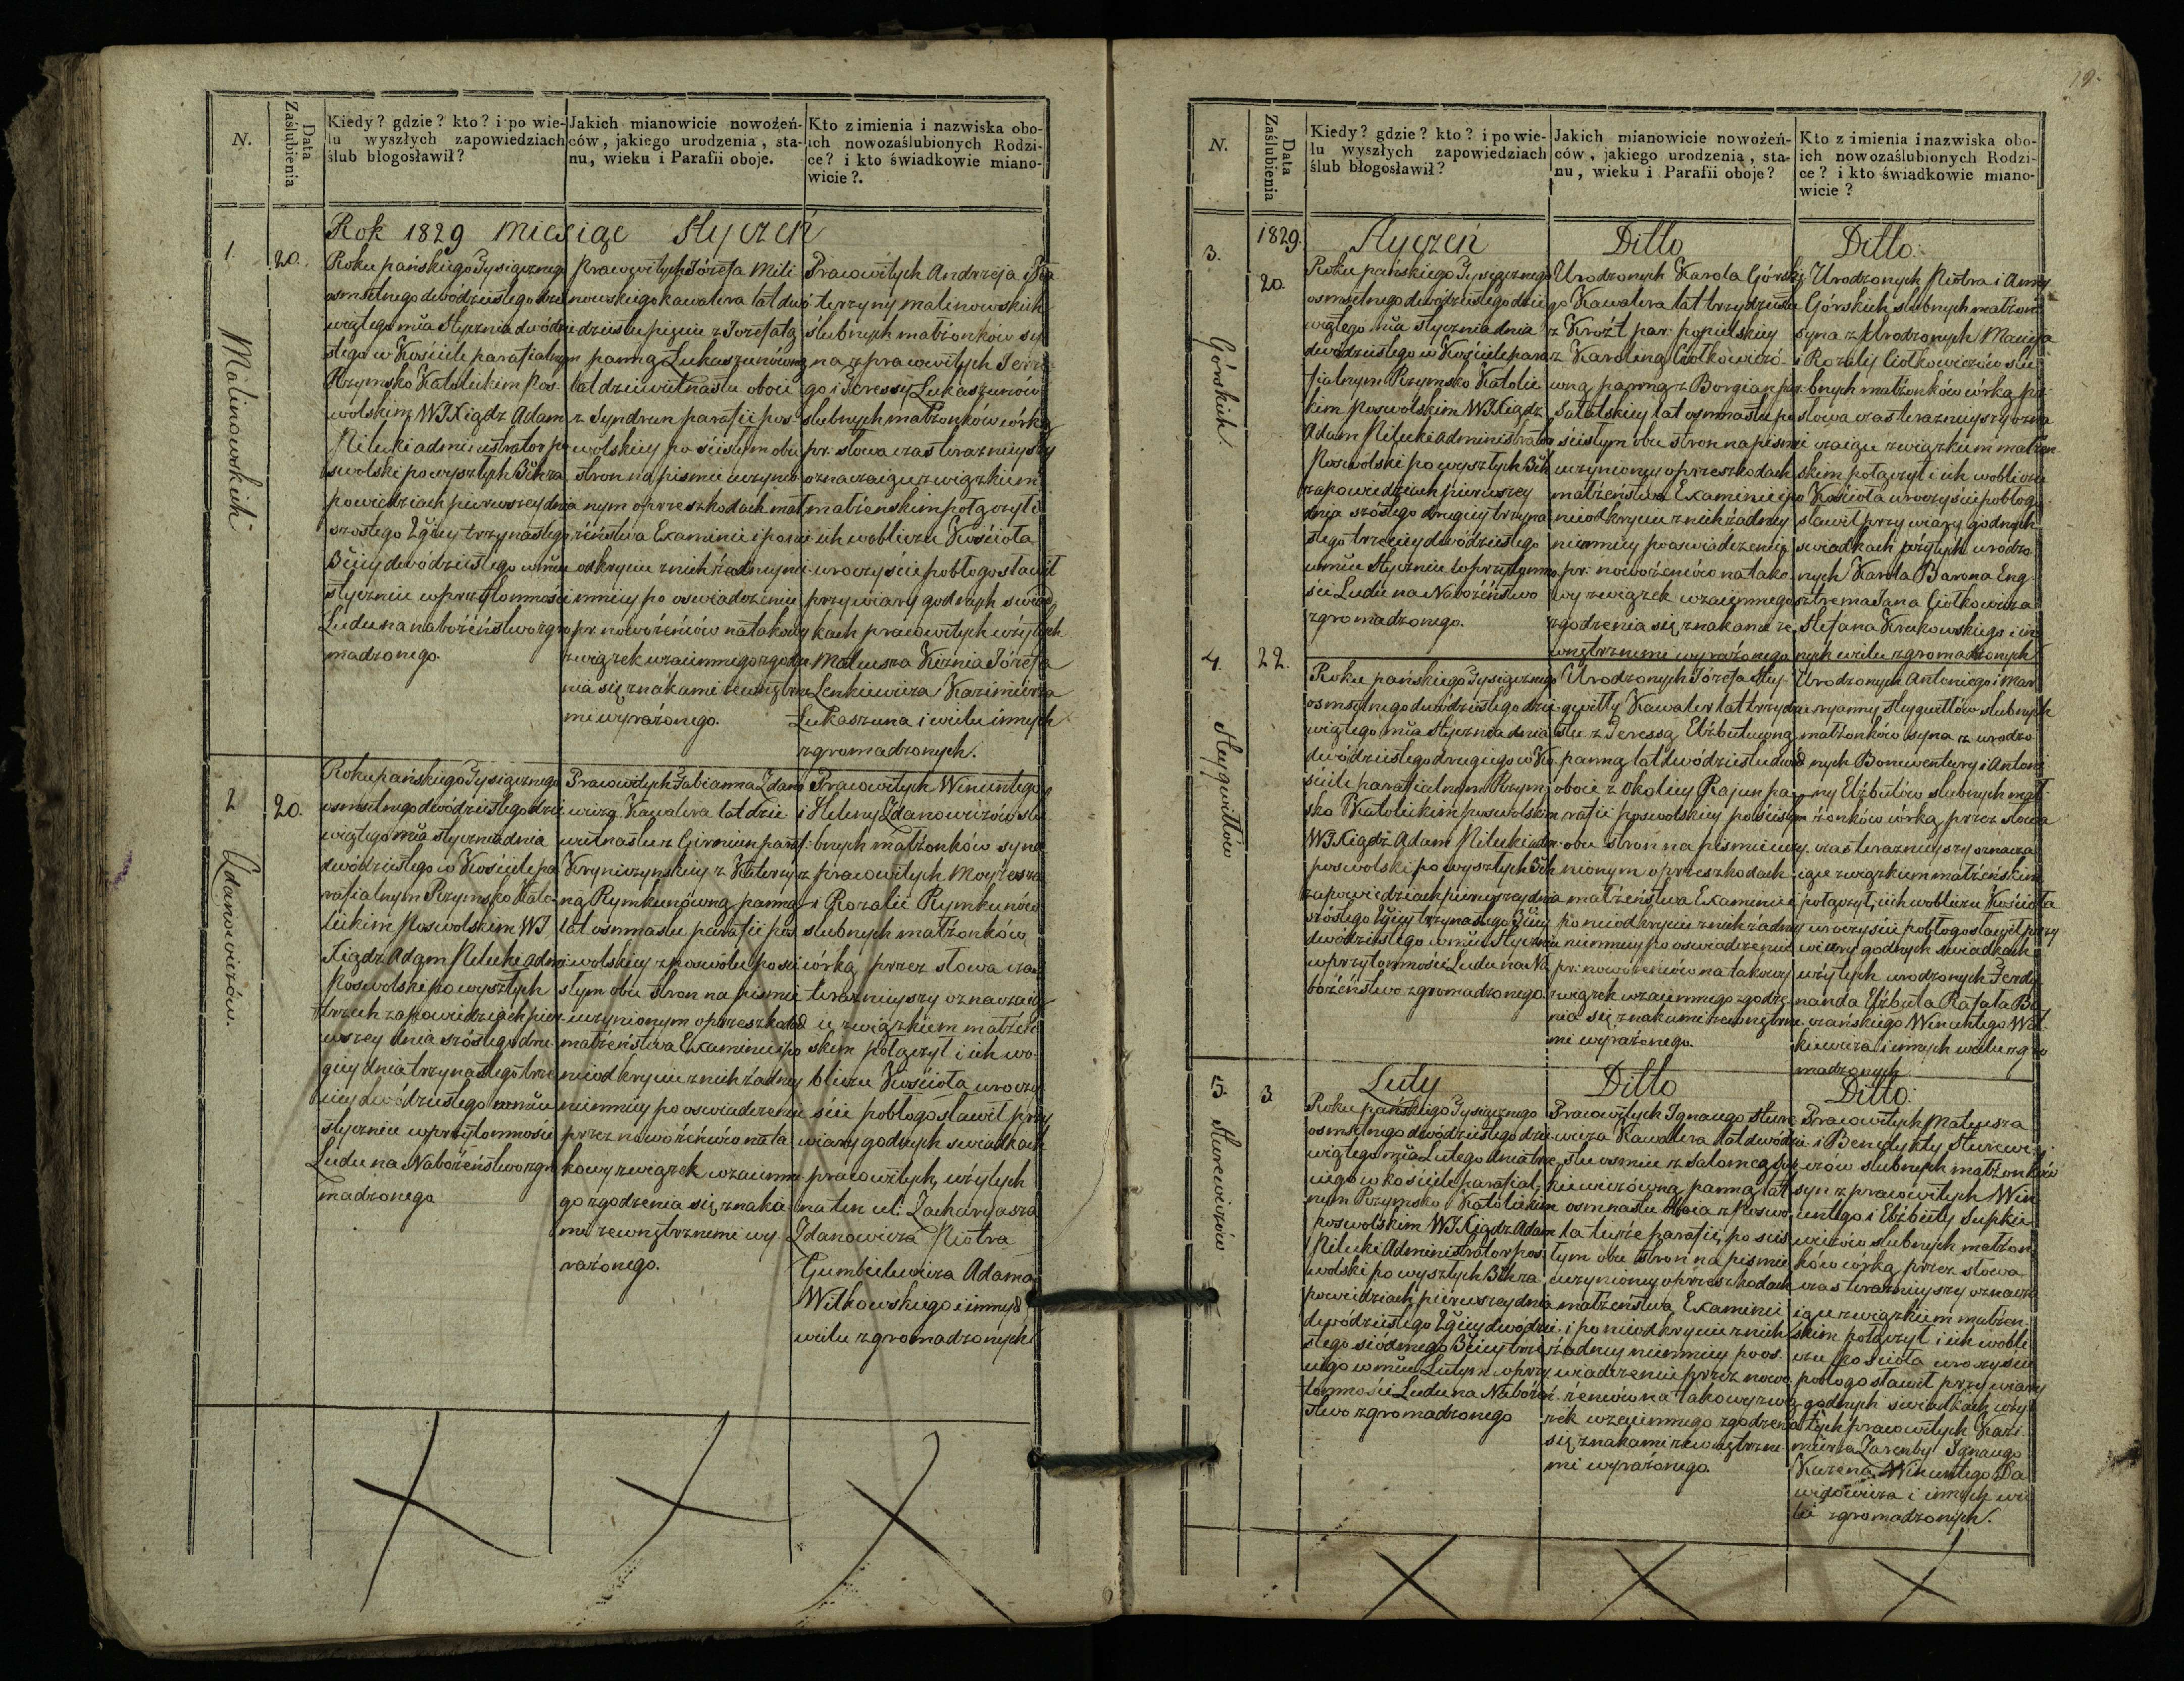 19.
N.
Data Zaślubienia
Kiedy? gdzie? kto? i po wie-
lu wyszłych zapowiedziach
ślub błogosławił?
Jakich mianowicie nowożeń-
ców, jakiego urodzenia, sta-
nu, wieku i Parafii oboje.
Kto z imienia i nazwiska obo-
ich nowozaślubionych Rodzi-
ce? i kto świadkowie miano-
wicie?.
Rok 1829 miesiąc Styczeń
1.
Malinowskich
20.
Roku pańskiego Tysiącznego
osmsetnego dwódziestego dzie
wiątego mca Stycznia dwódzie
stego w Kościele parafialnym
Rzymsko Katolickim Pos-
wolskim WJ Xiądz Adam
Nilecki administrator po
swolski po wyszłych 3ch za
powiedziach pierwszey dnia
szostego 2giey trzynastego
3ciey dwódziestego w mcu
styczniu w przytomności
Ludu na nabożeństwo zgro
madzonego.
Pracowitych Józefa Mali
nowskiego kawalera lat dwó
dziestu pięciu z Jozefatą
panną Lukaszunowną
lat dziewietnastu oboie
z Syndrun parafii pos-
wolskiey po scisłym obu
stron na pismie uczynio
nym o przeszkodach mał
żeństwa Examinie i po nie
odkryciu z nich żadney ni-
nieyszy po oswiadczeniu
pr. nowożeńców na takowy
związek wzaiemnego zgodze
nia się znakami zewnętrzne
mi wyrażonego.
Pracowitych Andrzeja i Ka
terzyny malinowskich
ślubnych małżonków sy
na z pracowitych Jerze
go i Teressy Lukaszunów
slubnych małżonków córką
pr. słowa czas teraznieyszy
oznaczaiące związkiem
małżenskim połączył i
ich w obliczu Kościoła
uroczyście pobłogosławił
przy wiary godnych swiad
kach pracowitych użytych
Mateusza Kiznia Józefa
Lenkiewicza Kazimierza
Lukaszuna i wielu innych
zgromadzonych.
2
Zdanowiczów.
20.
Roku pańskiego Tysiącznego
osmsetnego dwódziestego dzie
wiątego mca stycznia dnia
dwódziestego w Kościele pa
rafialnym Rzymsko Kato-
lickim Poswolskim WJ
Xiądz Adam Nilecki admi
Poswolski po wyszłych
trzech zapowiedziach pier
wszey dnia szóstego dru
giey dnia trzynastego trze
ciey dwódziestego w mcu
styczniu w przytomności
Ludu na Nabożeństwo zgro
madzonego
Pracowitych Fabianna Zdano
wicza Kawalera lat dzie
wietnastu z Girniun paraf:
Krynczynskiey z Katerzy
ną Rymkunówną panną
lat osmnastu parafii pos
wolskiey z poswola po sci
słym obu stron na pismie
uczynionym o przeszkodach
małżenstwa Examinie i po
nieodkryciu z nich żadney
nieminiey po oswiadczeniu
przez nowożeńców na ta
kowy związek wzaiemne
go zgodzenia się, znaka
mi zewnętrznemi wy
rażonego.
Pracowitych Wincentego
i Heleny Zdanowiczów slu
bnych małżonków syna
z pracowitych Moyżesza
i Rozalii Rymkunów
slubnych małżonków
córką przez słowa czas
teraznieyszy oznaczaią
ce związkiem małżeń
skim połączył i ich w o
bliczu Kościoła uroczy
scie pobłogosławił przy
wiary godnych swiadkach
pracowitych, użytych
na ten cel: Zacharyasza
Zdanowicza Piotra
Gumbielewicza Adama
Witkowskiego i innych
wielu zgromadzonych
N.
Data Zaślubienia
Kiedy? gdzie? kto? i po wie-
lu wyszłych zapowiedziach
ślub błogosławił?
Jakich mianowicie nowożeń-
ców, jakiego urodzenia, sta-
nu, wieku i Parafii oboje?
Kto z imienia i nazwiska obo-
ich nowozaślubionych Rodzi-
ce? i kto świadkowie miano-
wicie?
1829.
Styczeń
Ditto
Ditto:
3.
Górskich
20
Roku pańskiego Tysiącznego
osmsetnego dwódziestego dzie
wiątego mca stycznia dnia
dwódziestego w Kościele para
fialnym Rzymsko Katolic
kim Poswolskim WJ Xiądz
Adam Nilecki administrator
Poswolski po wyszłych 3ch
zapowiedziach pierwszey
dnia szóstego drugiey trzyna
stego trzeciey dwódziestego
w mcu Styczniu w przytomno
ści Ludu na Nabożeństwo
zgromadzonego.
Urodzonych Karola Górskie
go Kawalera lat trzydziestu
z Kroźt par: popielskiey
z Karoliną Ciołkowiczó
wną panną z Borgian par.
Satelskiey lat osmnastu po
ścisłym obu stron na pismie
uczynioney o przeszkodach
małżeństwa Examinie i po
nieodkryciu z nich żadney
niemniey po oswiadczeniu
pr: nowożeńców na tako
wy związek wzaiemnego
zgodzenia się, znakami ze
wnętrznemi wyrażonego
Urodzonych Piotra i Anny
Górskich slubnych małżon
syna z Urodzonych Macieja
i Rozalij Ciołkowiczów slu
bnych małżonków córką pr:
słowa czas teraznieyszy ozna
czaiące związkiem małżen
skim połączył i ich w obliczu
Kościoła uroczyście pobłogo
sławił przy wiary godnych
swiadkach użytych urodzo
nych Karola Barona Eng-
sztrema Jana Ciołkowicza
Stefana Krukowskiego i in
nych wielu zgromadzonych
4.
Steygwiłłów
22.
Roku pańskiego Tysiącznego
osmsetnego dwódziestego dzie-
wiątego mca stycznia dnia
dwódziestego drugiego w Ko
ściele parafialnym Rzym
sko Katolickim poswolskim
WJ Xiądz Adam Nilecki adm:
poswolski po wyszłych 3ch
zapowiedziach pierwszey dnia
szóstego 2giey trzynastego 3ciey
dwódziestego w mcu Styczniu
w przytomności Ludu na Na
bożeństwo zgromadzonego.
Urodzonych Józefa Stey-
gwiłły Kawaler lat trzydzie
stu z Teressą Elżbutówną
panną lat dwódziestu dwóch
oboie z okolicy Rajun pa
rafii poswolskiey po ścisłym
obu stron na pismie uczy
nionym o przeszkodach
małżeństwa Examinie
po nieodkryciu z nich żadney
niemniey po oswiadczeniu
pr: nowożeńców na takowy
związek wzaiemnego zgodze
nia się, znakami zewnętrzne
mi wyrażonego.
Urodzonych Antoniego i Mar
yanny Steygwiłłów slubnych
małżonków syna z urodzo
nych Bonewentury i Antoni
ny Elżbutów slubnych mał
żonków córką, przez słowa
czas teraznieyszy oznacza
iące związkiem małżeńskim
połączył, i ich w obliczu Kościoła
uroczyście pobłogosławił przy
wiary godnych swiadkach
użytych urodzonych Ferdy
nanda Elżbuta Rafała Bu
czańskiego Wincentego Wit
kiewicza i innych wielu zgro
madzonych
Luty
Ditto
Ditto:
5.
Sturewiczów
3
Roku pańskiego Tysiącznego
osmsetnego dwódziestego dzie
wiątego mca Lutego dnia trze
ciego w kościele parafial
nym Rzymsko Katolickim
poswolskim WJ Xiądz Adam
Nilecki Administrator pos
wolski po wyszłych 3ch za
powiedziach pierwszey dnia
dwódziestego 2giey dwódzie
stego siódmego 3ciey trze
ciego w mcu Lutym w przy
tomności Ludu na Nabożeń
stwo zgromadzonego
Pracowitych Ignacego Sture
wicza Kawalera lat dwódzie
stu osmiu z Salomeą Sup
kiewiczówną panną lat
osmnastu oboia z Poswo
la tuteż parafii, po scis
łym obu stron na pismie
uczynioney o przeszkodach
małżenstwa Examinie
i po nieodkryciu z nich
żadney niemniey po os
wiadczeniu przez nowo
żeńców na takowy związ
zek wzaiemnego zgodzenia
się znakami zewnętrzne
mi wyrażonego.
Pracowitych Mateusza
i Benedykty Sturewi
czów slubnych małżonków
syn z pracowitych Win
centego i Elżbiety Supkie
wiczów slubnych małżon
ków córką przez słowa
czas teraznieyszy oznacza
iące związkiem małżen
skim połączył i ich w obli
czu Kościoła uroczyście
pobłogosławił przy wiary
godnych swiadkach uży
tych pracowitych Kazi
mierza Zarenby Ignacego
Kuzena Wincentego Da
widowicza i innych wie
lu zgromadzonych.